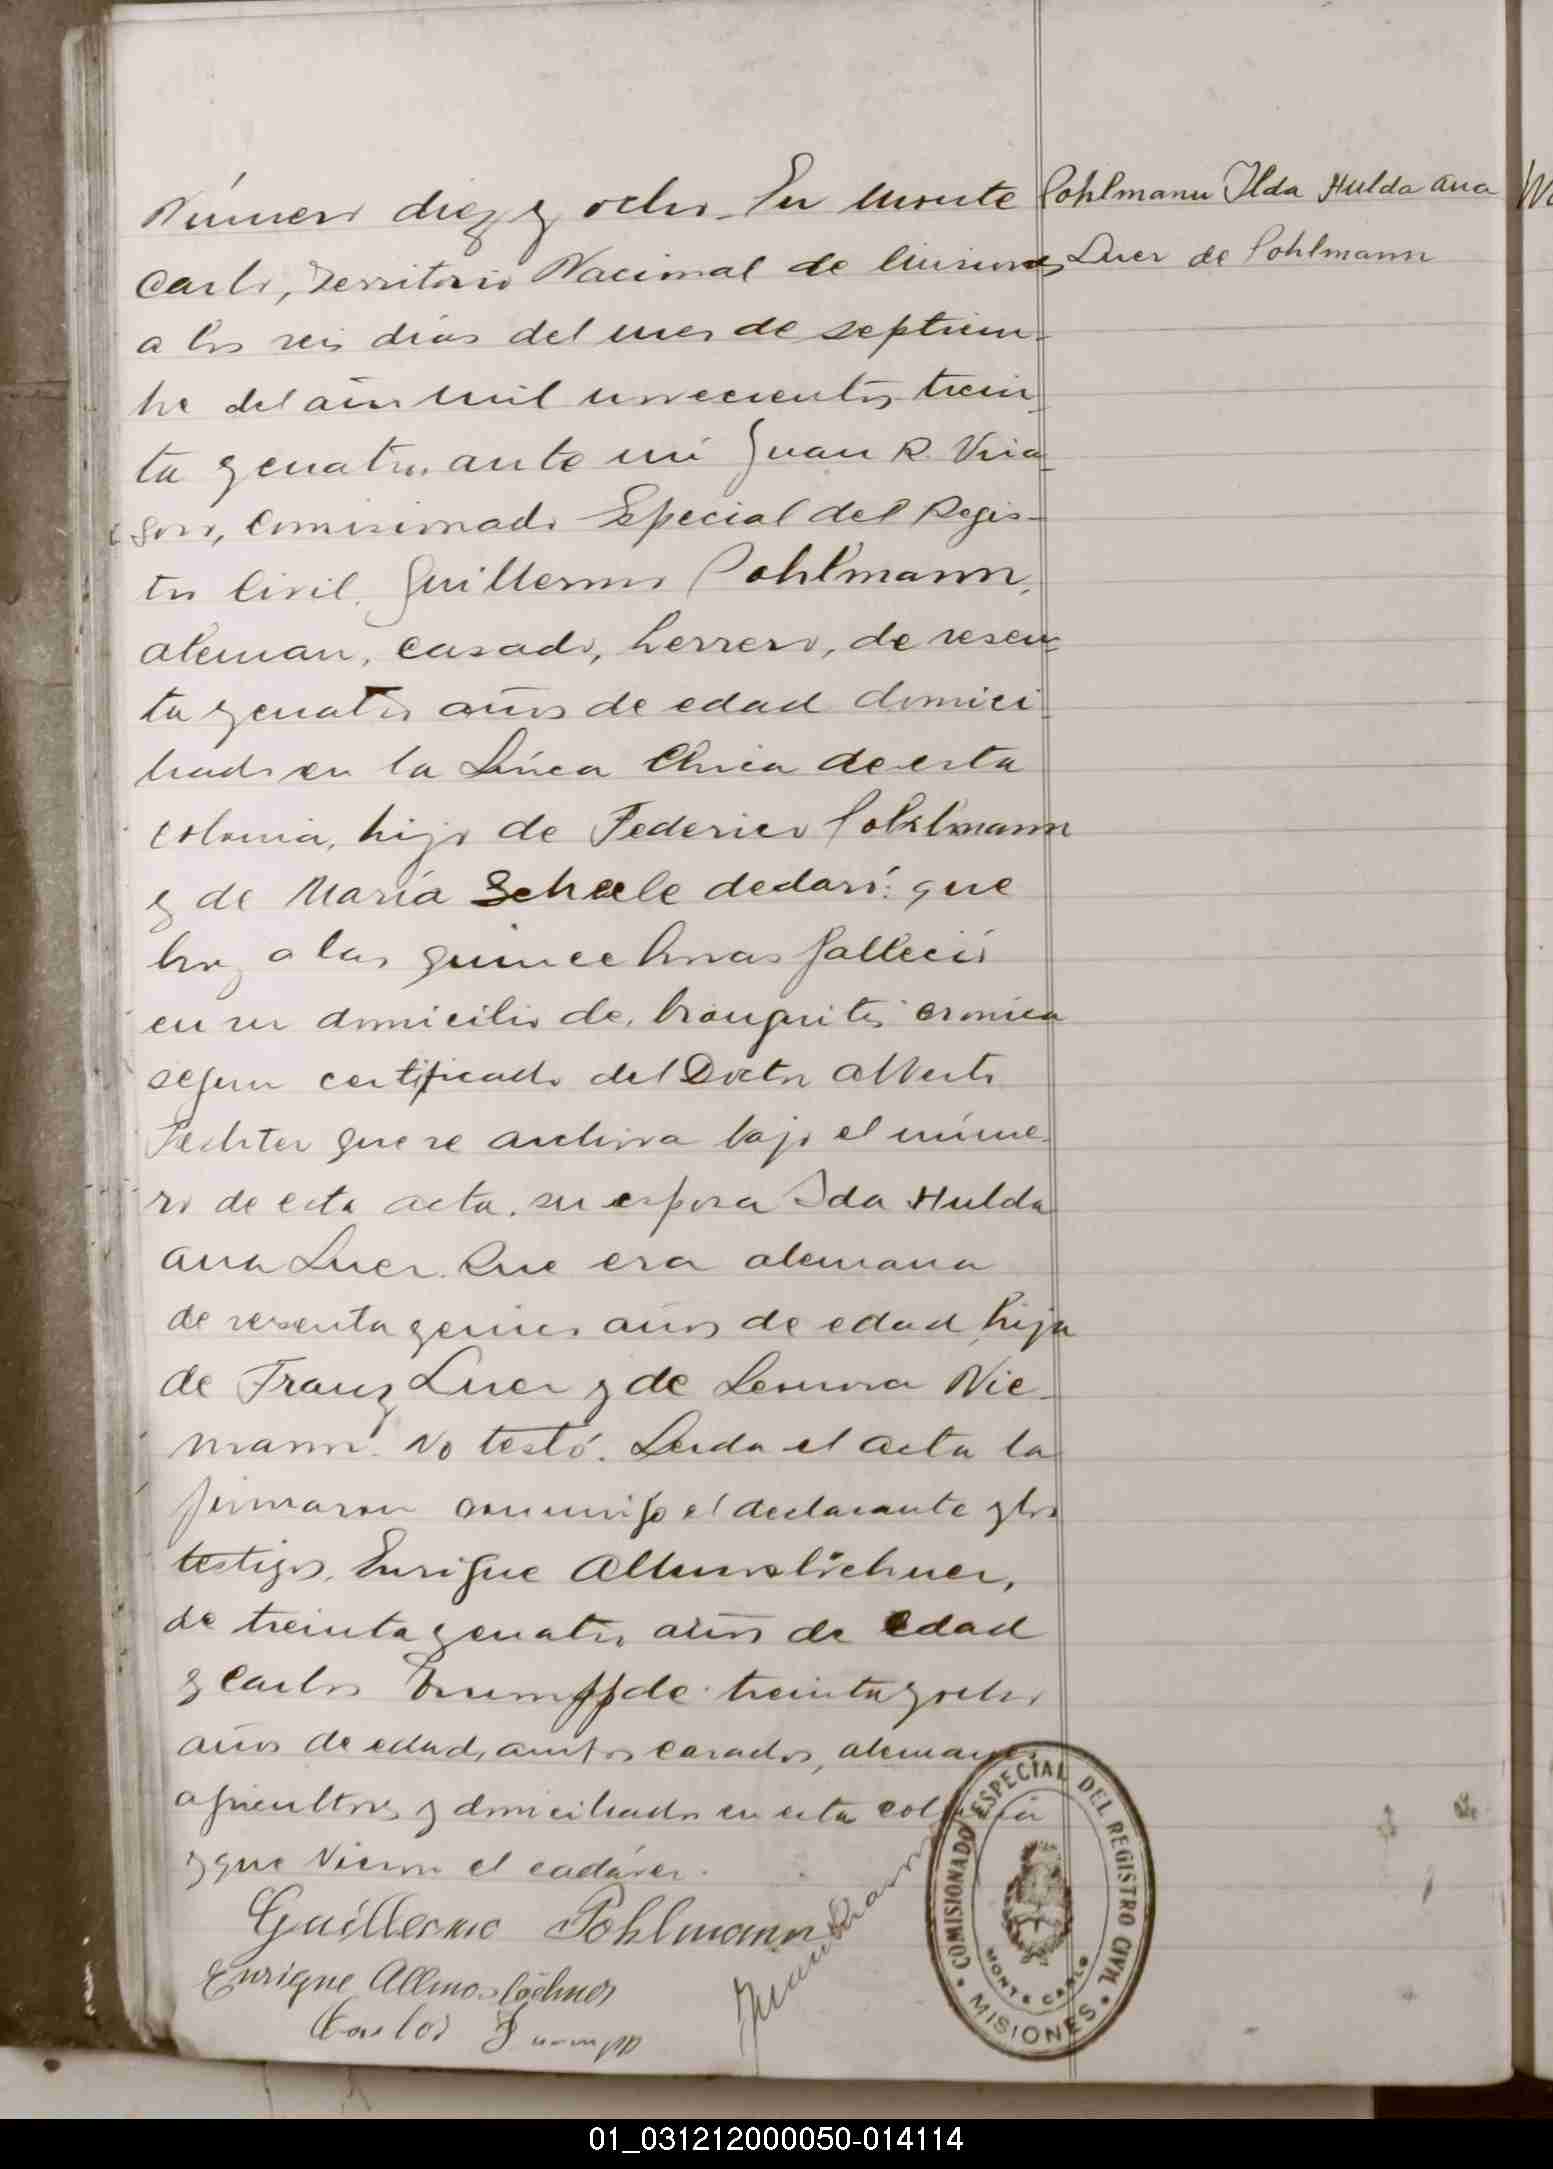 Número diez y ocho. En Monte
Carlo, Territorio Nacional de Misiones
a los seis días del mes de septiem-
bre del año mil novecientos trein-
ta y cuatro, ante mí Juan R.
Comisionado Especial del Regis-
tro Civil. Guillermo Pohlmann,
aleman, casado, herrero, de sesen-
ta y cuatro años de edad domici-
liado en la Línea Chica de esta
colonia, hijo de Federico Pohlmann
y de María Scheele declaró: que
hoy a las quince horas falleció
en su domicilio de bronquitis cronica
segun certificado del Doctor Alberto
Fechter que se archiva bajo el núme-
ro de esta acta, su esposa Ida Hulda
Ana Luer. Que era alemana
de sesenta y cinco años de edad hija
de Franz Luer y de Leonora Nie-
mann. No testó. Leida el acta la
firmaron conmigo el declarante y los
testigos, Enrique Allmoslöchner,
de treinta y cuatro años de edad
y Carlos Trumpp de treinta y ocho
años de edad, ambos casados, alemanes
agricultores y domiciliados en esta colonia
y que vieron el cadáver.
Guillermo Pohlmann
Enrique Allmoslöchner
Carlos Trumpp
Pohlmann Ilda Hulda Ana
Luer de Pohlmann
COMISIONADO ESPECIAL DEL REGISTRO CIVIL
MONTE CARLO
MISIONES
01_031212000050-014114